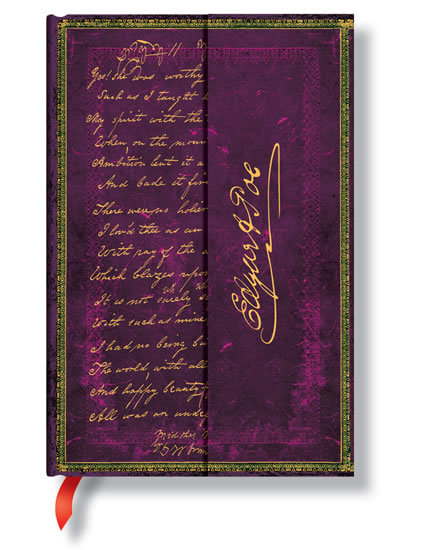 11
Yes! she was worthy
Such as I taught h
My spirit with the
When, on the moun
Ambition lent it a
And bade it fir
There were no holier
I lov'd thee as an
With ray of the a
Which blazes upon
It is not surely s
With such as mine
I had no being bu
The world with all
And happy beauty
All was an unde
Edgar A Poe